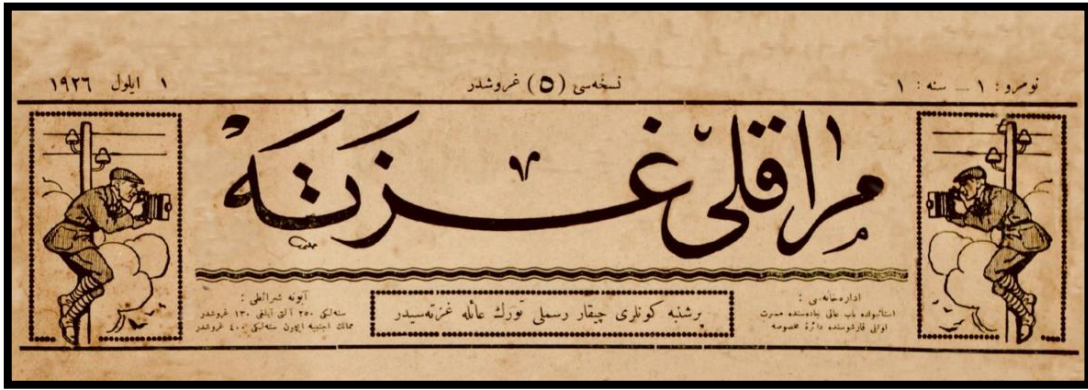 نومرو : ١ — سنه : ١
نسخه‌سی (٥) غروشدر
١ ايلول ١٩٢٦
مراقلی غزته
اداره‌خانه‌سی :
استانبولده باب عالی جاده‌سنده مسرت
اوتلی قارشوسنده دائرهٔ مخصوصه
پرشنبه كونلری چيقار رسملی تورك عائله غزته‌سيدر
آبونه شرائطی :
سنه‌لكی ٢٥٠ آلتی آيلغی ١٣٠ غروشدر
ممالك اجنبيه ايچون سنه‌لكی ٤٠٠ غروشدر